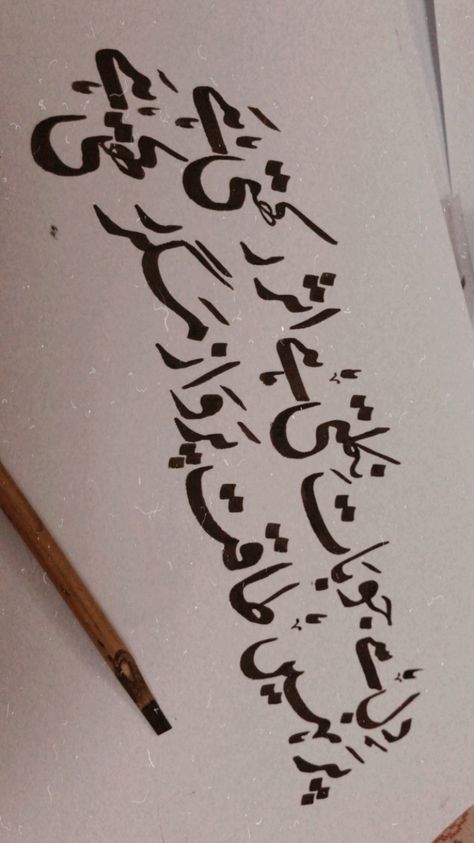 دل سے جو بات نکلتی ہے اثر رکھتی ہے
پر نہیں طاقت پرواز مگر رکھتی ہے